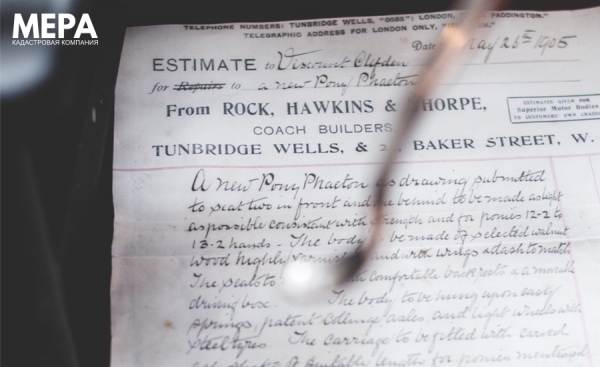 МЕРА
КАДАСТРОВАЯ КОМПАНИЯ
TELEPHONE NUMBERS: TUNBRIDGE WELLS, "0083"; LONDON, PADDINGTON."
TELEGRAPHIC ADDRESS FOR LONDON ONLY,
Date May 25th 1905
ESTIMATE to Viscount Clifden
for Repairs to a new Pony Phaeton
From ROCK, HAWKINS & THORPE,
ESTIMATES GIVEN FOR
Superior Motor Bodies
TO CUSTOMERS' OWN
COACH BUILDERS
TUNBRIDGE WELLS, & BAKER STREET, W.
A new Pony Phaeton as drawing submitted
to seat two in front and one behind to be made as light
as possible consistent with strength and for ponies 12-2 to
13-2 hands - The body to be made of selected walnut
wood highly varnished and with wings & dash to match
The seats to comfortable back rests & a movable
driving box. The body to be hung upon easy
springs, patent Collinge axles, and light wheels with
steel tyres. The carriage to be fitted with carved
suitable length for ponies mentioned